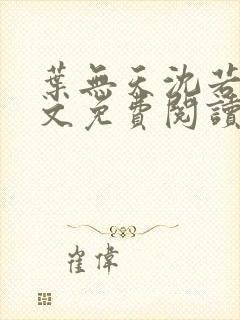 葉無天沈若
文免費閱讀
崔偉